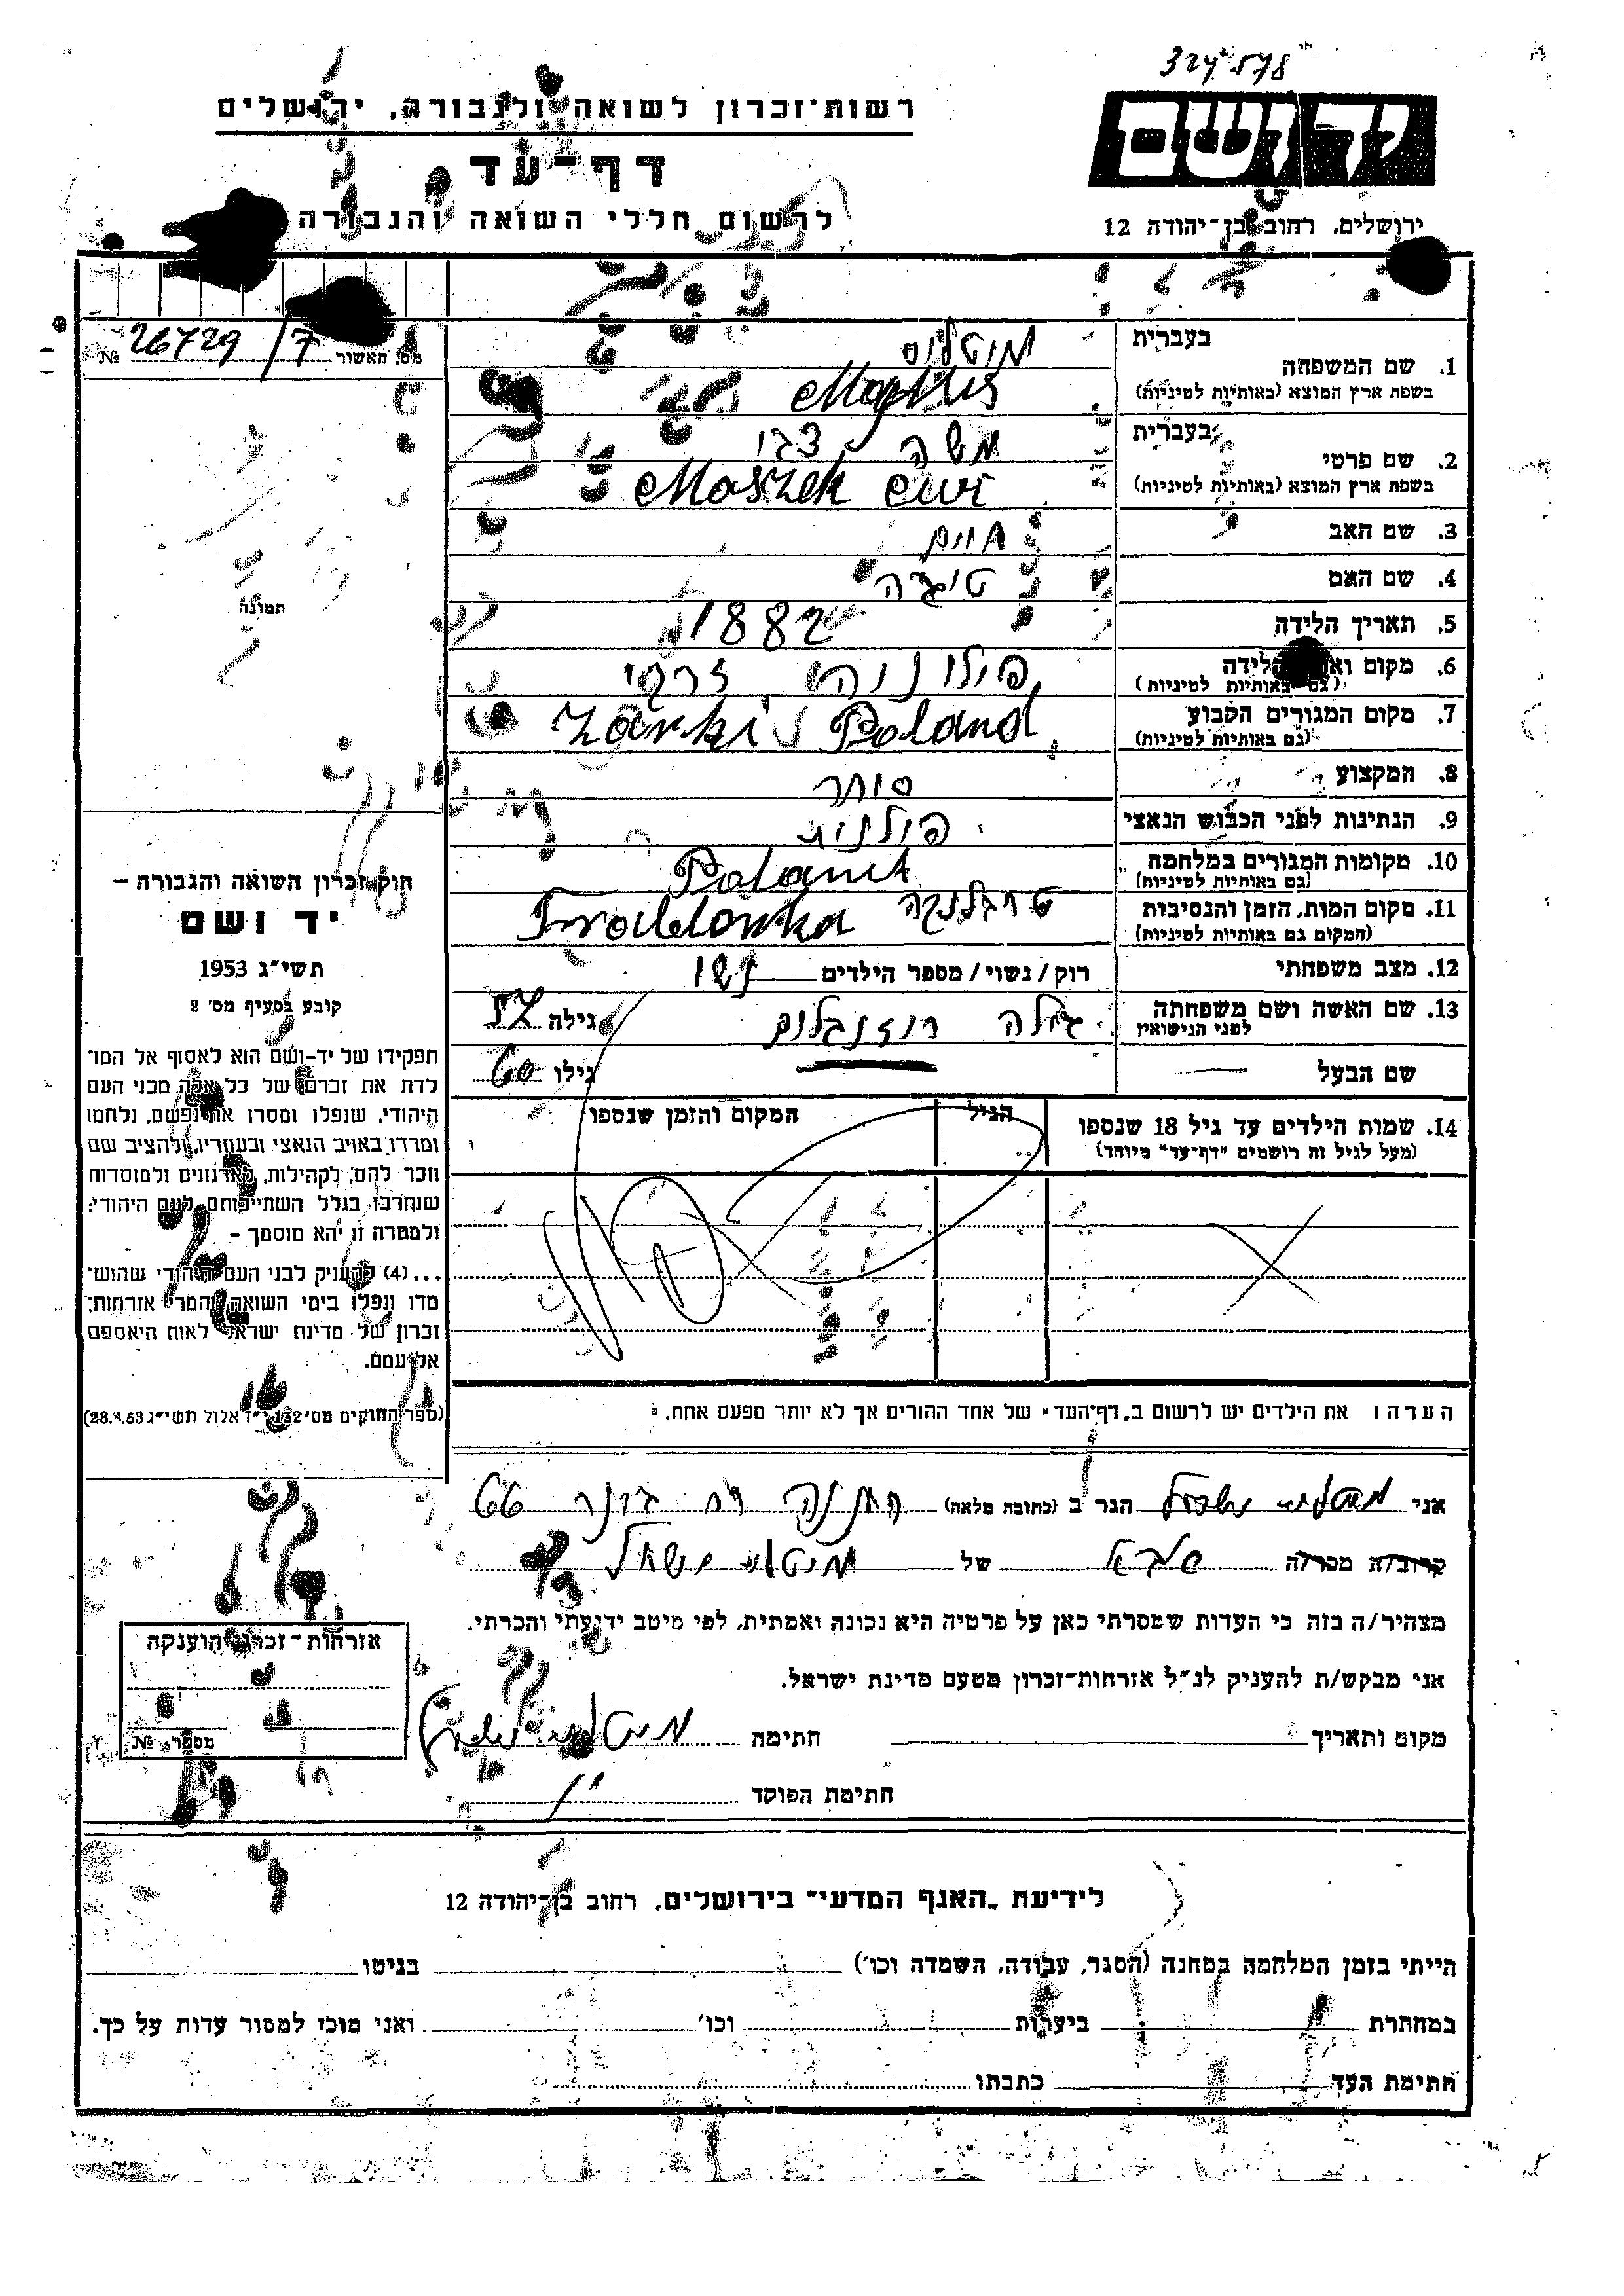 324578
רשות־זכרון לשואה ולגבורה, ירושלים
יד ושם
דף־עד
לרשום חללי השואה והגבורה
ירושלים, רחוב בן־יהודה 12
מס. האשור 26729/7 №
בעברית
1. שם המשפחה
בשפת ארץ המוצא (באותיות לטיניות)
בעברית משה צבי
2. שם פרטי
בשפת ארץ המוצא (באותיות לטיניות) Moszek Cwi
3. שם האב חיים
4. שם האם טובה
5. תאריך הלידה 1882
6. מקום וארץ הלידה זרקי
(גם באותיות לטיניות)
7. מקום המגורים הקבוע Poland Zarki
(גם באותיות לטיניות)
8. המקצוע סוחר
9. הנתינות לפני הכבוש הנאצי פולנית
10. מקומות המגורים במלחמה
(גם באותיות לטיניות)
11. מקום המות, הזמן והנסיבות טרבלינקה
(המקום גם באותיות לטיניות)
12. מצב משפחתי רוק/נשוי/מספר הילדים
13. שם האשה ושם משפחתה
לפני הנישואין
גילה 57
שם הבעל — גילו 60
14. שמות הילדים עד גיל 18 שנספו
(מעל לגיל זה רושמים "דף־עד" מיוחד)
הגיל
המקום והזמן שנספו
הערה: את הילדים יש לרשום ב„דף־העד" של אחד ההורים אך לא יותר מפעם אחת.
תמונה
חוק זכרון השואה והגבורה —
יד ושם
תשי"ג 1953
קובע בסעיף מס' 2
תפקידו של יד־ושם הוא לאסוף אל המו־
לדת את זכרם של כל אלה מבני העם
היהודי, שנפלו ומסרו את נפשם, נלחמו
ומרדו באויב הנאצי ובעוזריו, ולהציב שם
וזכר להם, לקהילות, לארגונים ולמוסדות
שנחרבו בגלל השתייכותם לעם היהודי;
ולמטרה זו יהא מוסמך –
...(4) להעניק לבני העם היהודי שהוש־
מדו ונפלו בימי השואה והמרי אזרחות־
זכרון של מדינת ישראל לאות היאספם
אל עמם.
(ספר החוקים מס' 132, י"ז אלול תשי"ג 28.8.53)
אני הגר ב (כתובת מלאה) 66
קרוב/ה מכר/ה של
מצהיר/ה בזה כי העדות שמסרתי כאן על פרטיה היא נכונה ואמתית, לפי מיטב ידיעתי והכרתי.
אני מבקש/ת להעניק לנ"ל אזרחות־זכרון מטעם מדינת ישראל.
מקום ותאריך חתימה
חתימת הפוקד
אזרחות־זכרון הוענקה
מספר №
לידיעת „האגף המדעי" בירושלים, רחוב בן־יהודה 12
הייתי בזמן המלחמה במחנה (הסגר, עבודה, השמדה וכו') בגיטו
במחתרת ביערות וכו' ואני מוכן למסור עדות על כך.
חתימת העד כתבתו